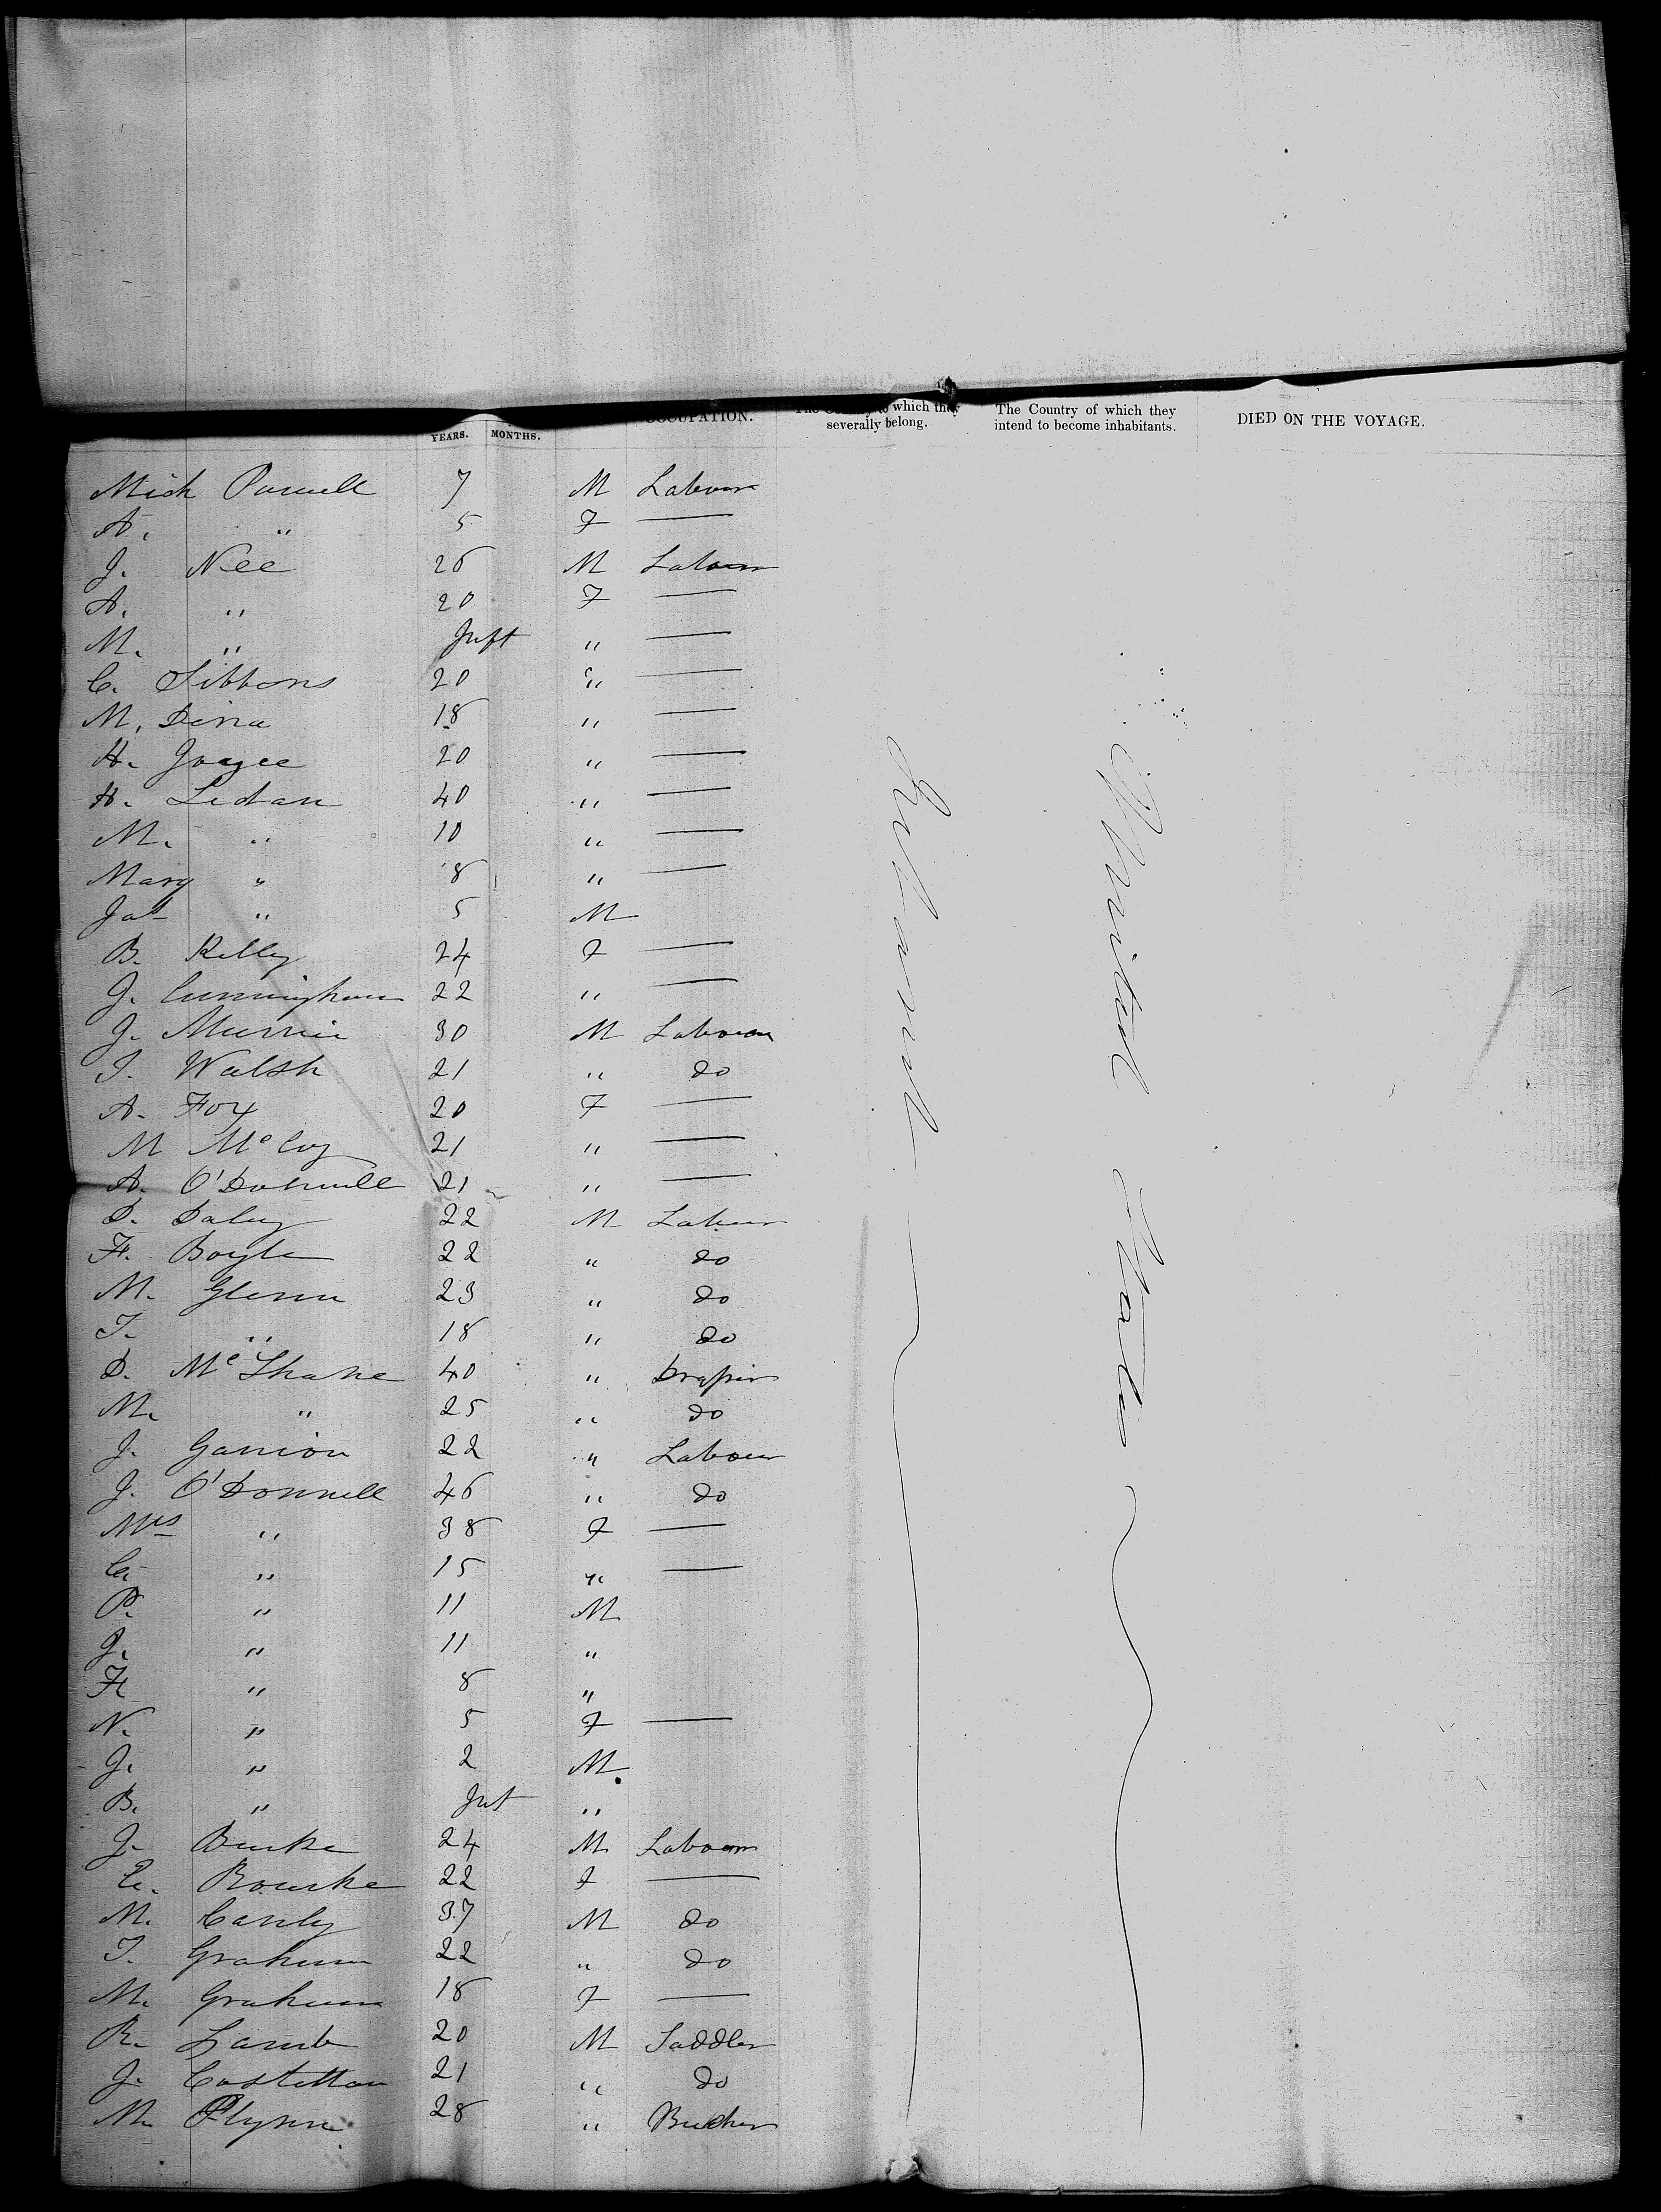 OCCUPATION. The Country to which they severally belong. The Country of which they intend to become inhabitants. DIED ON THE VOYAGE.
YEARS. MONTHS.
Mich Purcell 7 M Labour
A. " 5 F —
J. Nee 26 M Labour
A. " 20 F —
M. " Inft " —
C. Gibbons 20 " —
M. Dina 18 " —
H. Joyce 20 " —
H. Ledan 40 " —
M. " 10 " —
Mary " 8 " —
Jas " 5 M
B. Kelly 24 F —
J. Cunningham 22 " —
J. 30 M Labour
T. Walsh 21 " do
A. Fox 20 F —
M McCoy 21 " —
A. O'Donnell 21 " —
D. Daley 22 M Labour
F. Boyle 22 " do
M. Glenn 23 " do
T. " 18 " do
D. McShane 40 " Draper
M. " 25 " do
J. Gannon 22 " Labour
J. O'Donnell 46 " do
Mrs " 38 F —
C. " 15 " —
P. " 11 M
J. " 11 "
F. " 8 "
N. " 5 F —
J. " 2 M
B. " Inft "
J. Burke 24 M Labour
E. Rourke 22 F —
M. 37 M do
T. Graham 22 " do
M. Graham 18 F —
R. Lamb 20 M Saddler
J. Costelloe 21 " do
M. Flynn 28 " Bucher
Ireland
United States